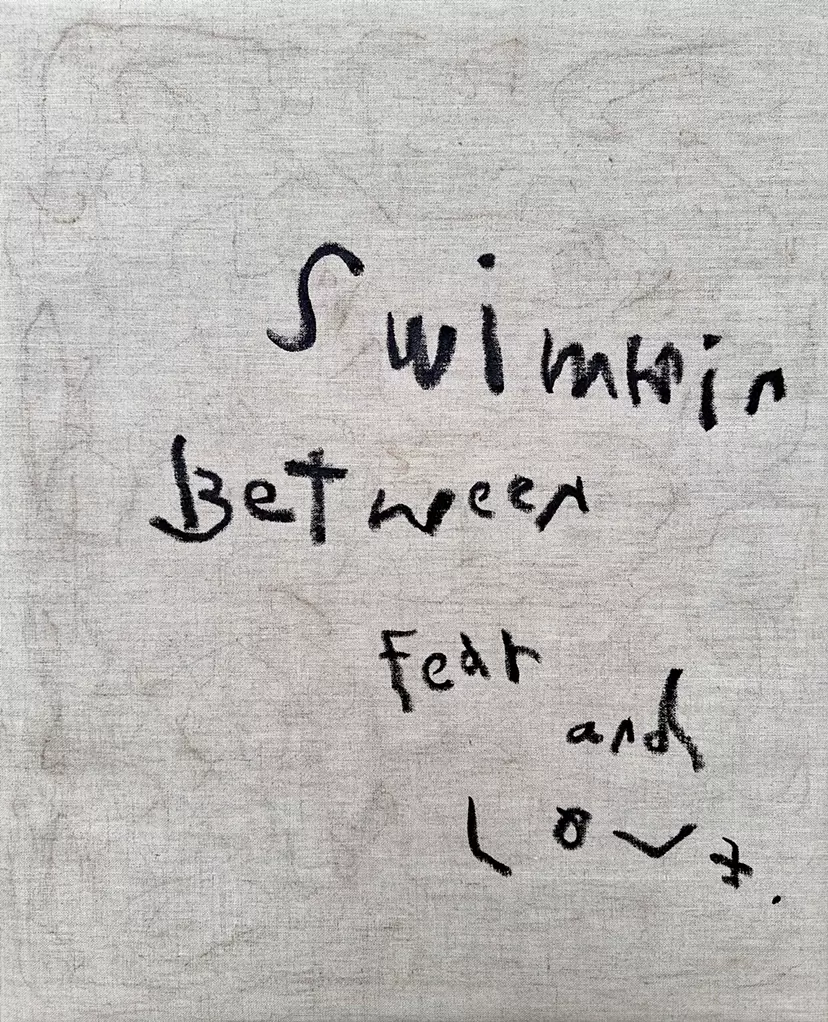 Swimmin
Between
Fear
and
Love.